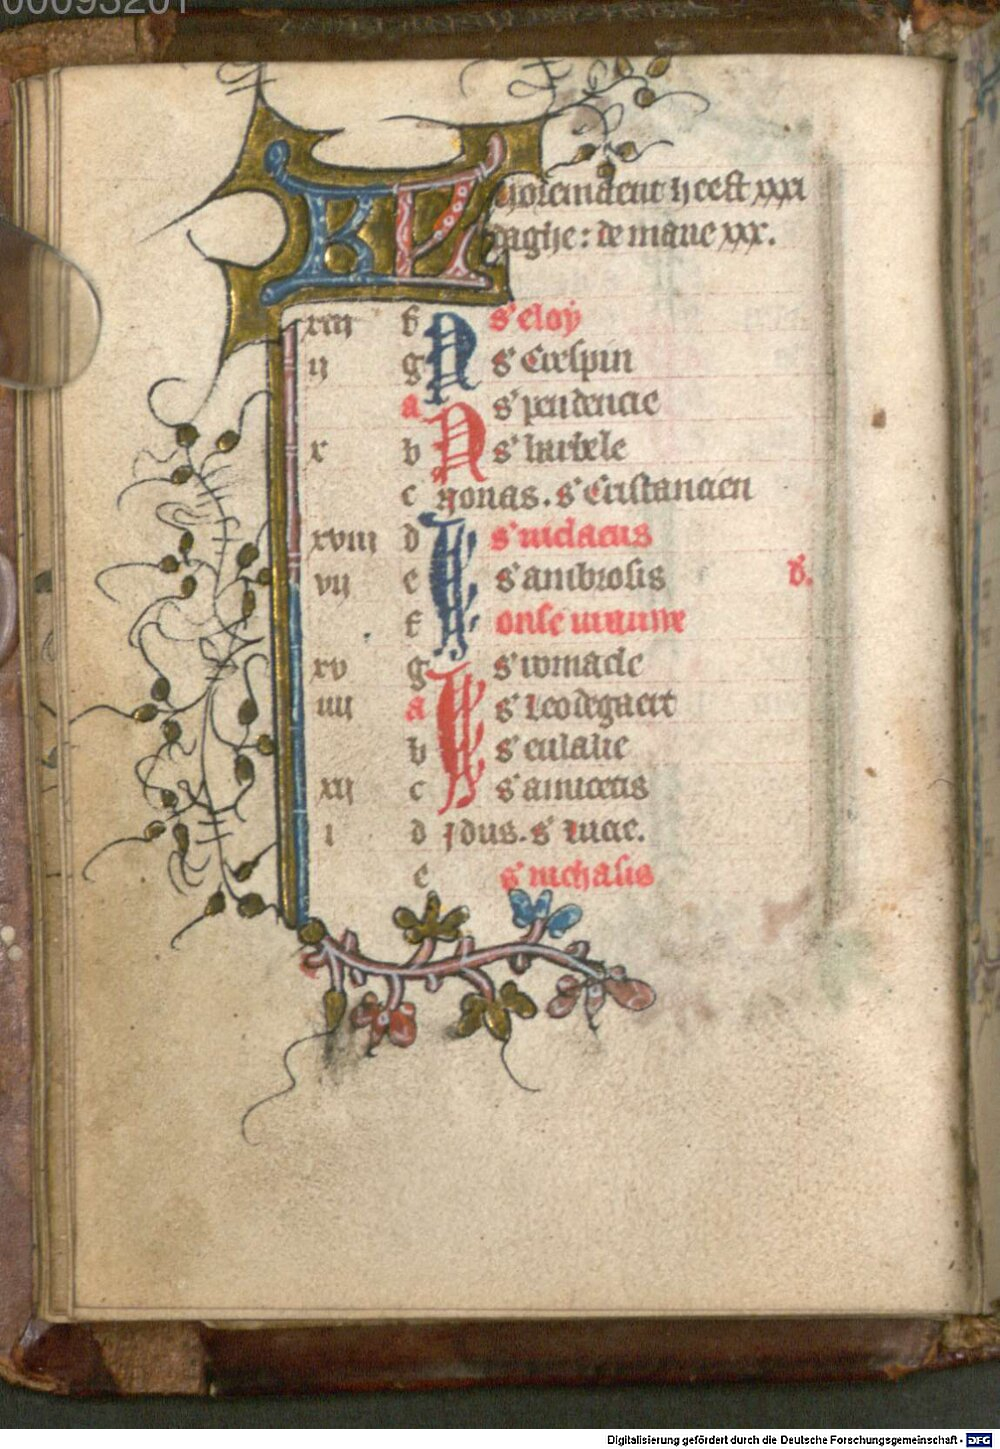 00095201
KL horemaent heeft xxxi
daghe: de mane xxx.
xiii f N s' eloÿ
ii g s' Crespin
a s' prudencie
x b N s' barbele
c nonas. s' Cristancien
xviii d I s' niclaeus
vii e s' ambrosis d.
f onse vrauwe
xv g s'
iiii a I s' Leodegaert
b s' eulalie
xii c s'
i d Idus. s' lucie.
e s' nichasis
Digitalisierung gefördert durch die Deutsche Forschungsgemeinschaft - DFG